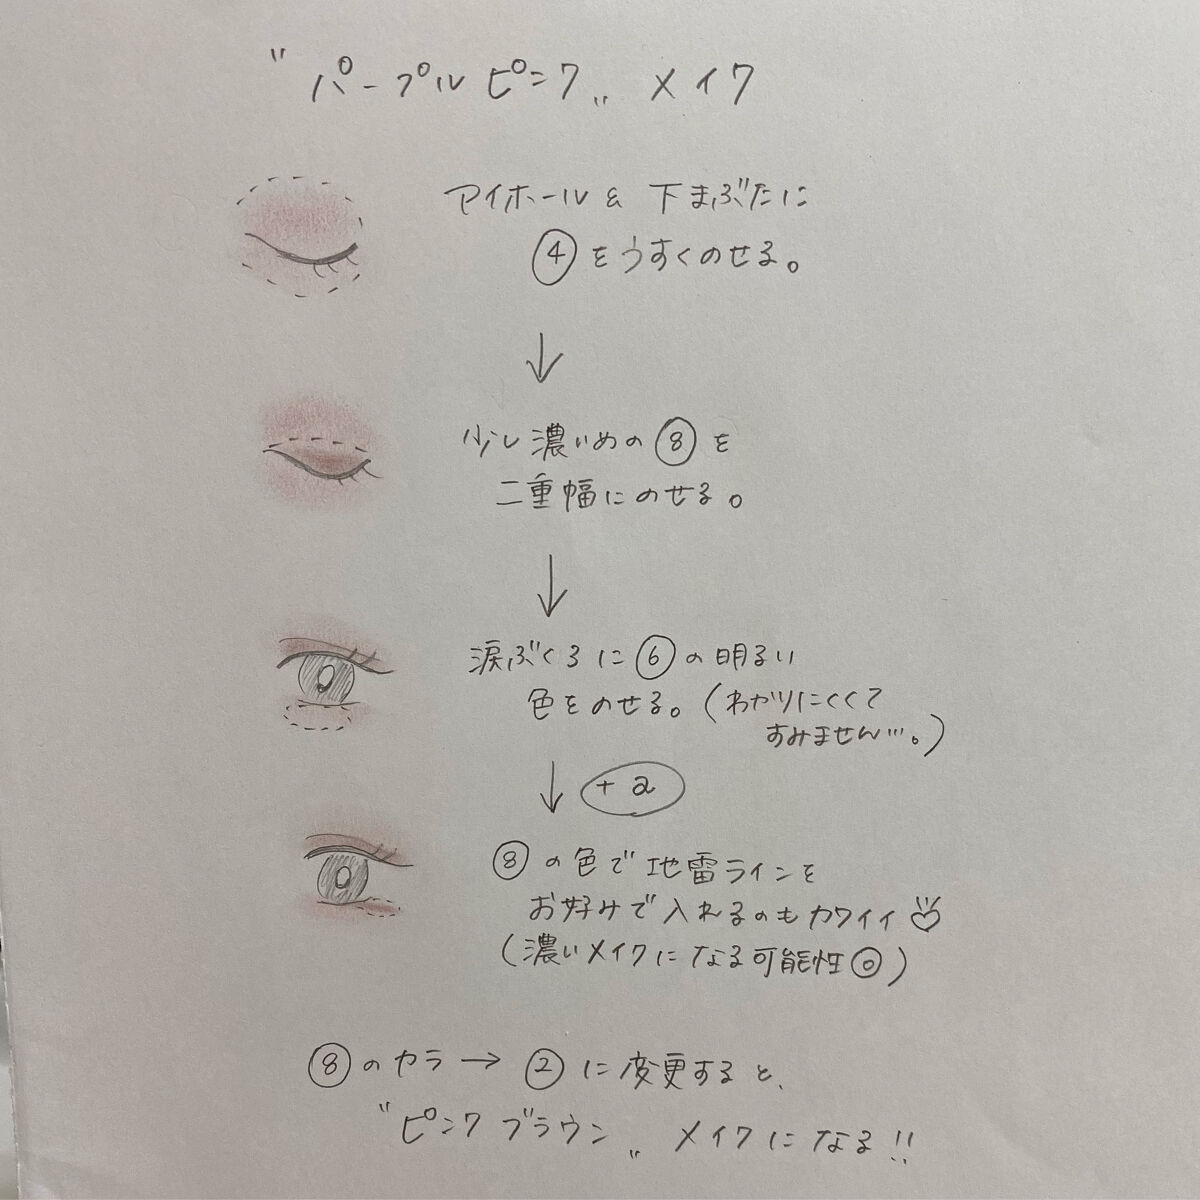 〝パープルピンク〟メイク
アイホール & 下まぶたに
④をうすくのせる。
↓
少し濃いめの⑧を
二重幅にのせる。
↓
涙ぶくろに⑥の明るい
色をのせる。(わかりにくくて
すみません…。)
↓ +a
⑧の色で地雷ラインを
お好みで入れるのもカワイイ♡
(濃いメイクになる可能性◎)
⑧のカラ→②に変更すると、
〝ピンクブラウン〟メイクになる!!